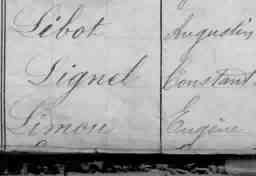 Lébot Augustin
Lignel Constant
Limon Eugène